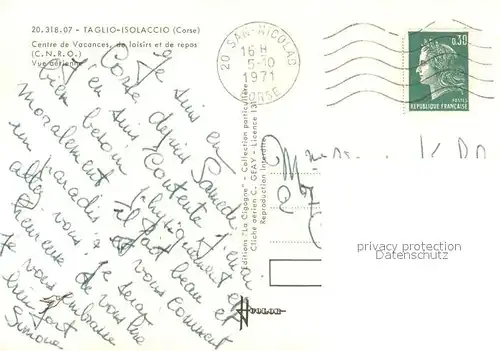 20.318.07 - TAGLIO-ISOLACCIO (Corse)
Centre de Vacances, de loisirs et de repos
(C.N.R.O.)
Vue aérienne
20 SAN-NICOLAO
16 H
5-10
1971
CORSE
0,30
POSTES
RÉPUBLIQUE FRANÇAISE
Je suis en
Corse depuis Samedi
J'en suis contente j'en ai
bien besoin physiquement et
moralement il fait beau
un paradis et vous comment
allez vous. Je serai
heureuse de vous lire
Je vous embrasse
bien fort
Simone
Editions "La Cigogne" - Collection particulière
Cliché aérien C. GEAY - Licence
Reproduction Interdite
privacy protection
Datenschutz